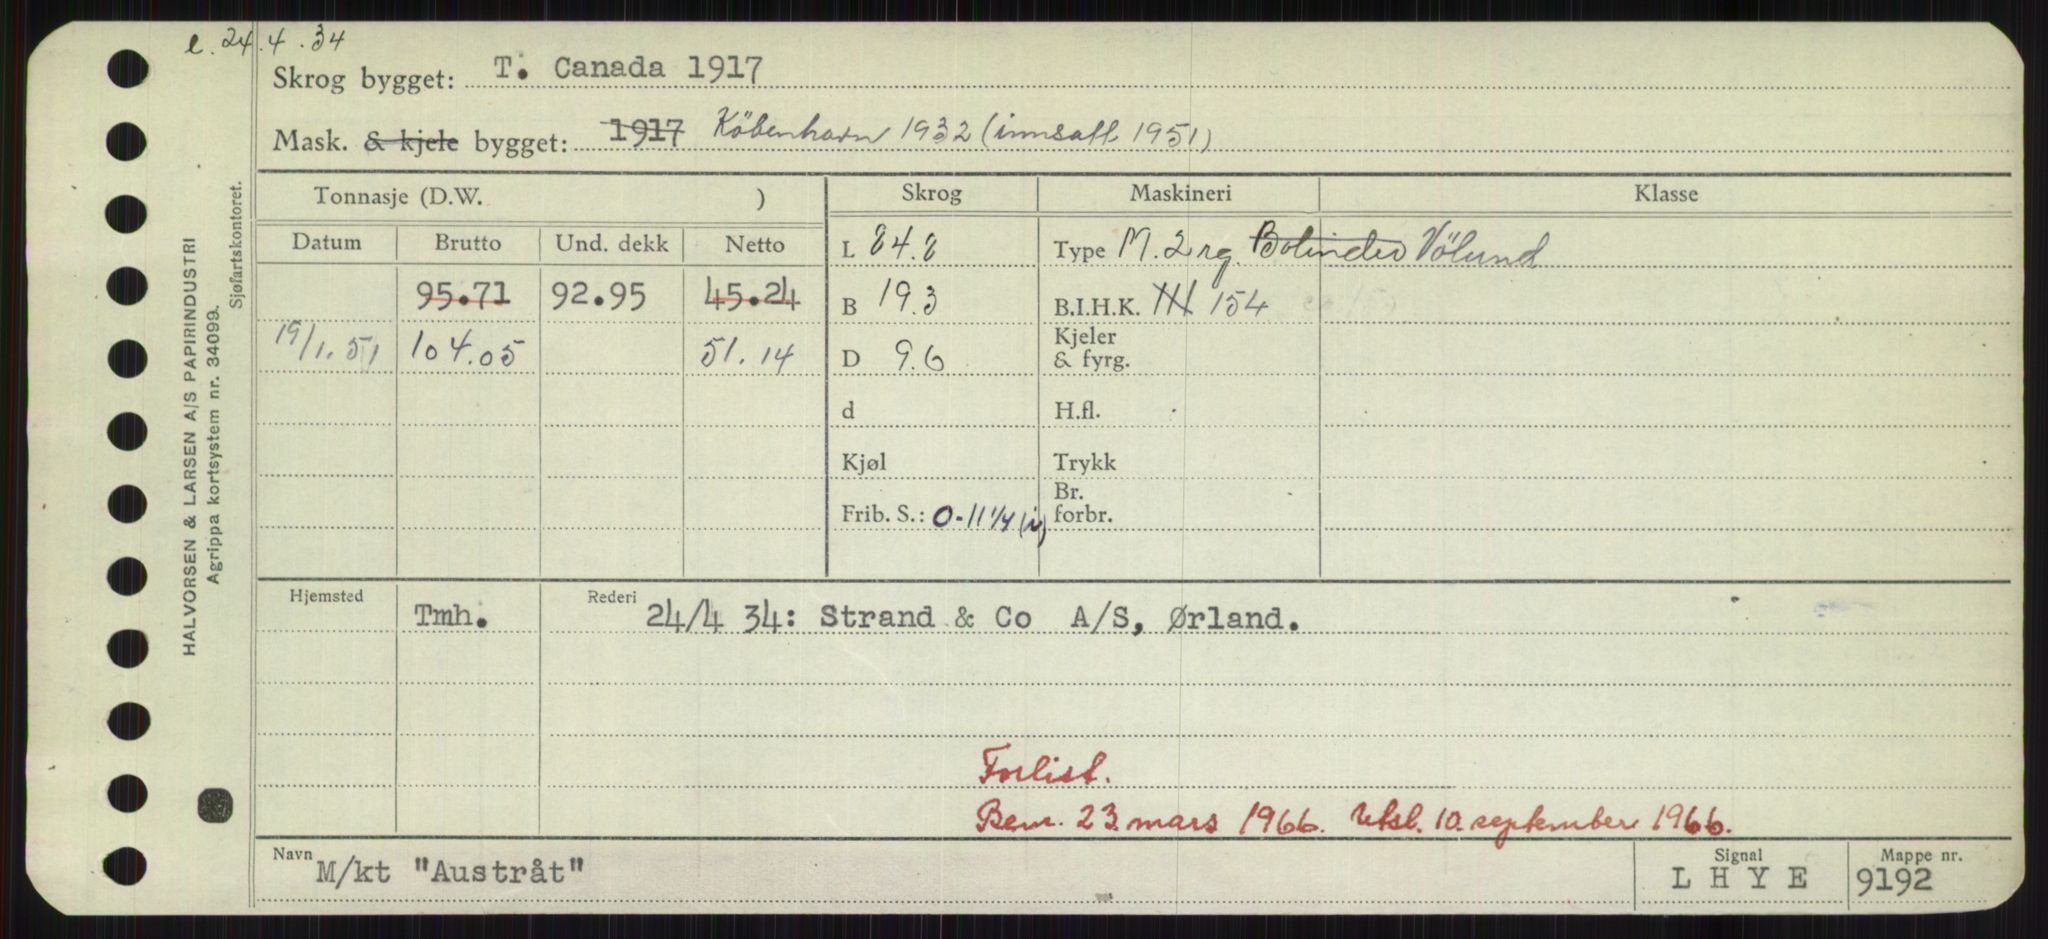 e. 24.4.34
Skrog bygget: T. Canada 1917
Mask. & kjele bygget: 1917 København 1932 (innsatt 1951)
Tonnasje (D.W. ) Skrog Maskineri Klasse
Datum Brutto Und. dekk Netto L 84.8 Type M. 2 rg. Bolinder Völund
95.71 92.95 45.24 B 19.3 B.I.H.K. 154
19/1.51 104.05 51.14 D 9.6 Kjeler & fyrg.
d H.fl.
Kjøl Trykk
Frib. S.: 0-11 1/4 (v) Br. forbr.
Hjemsted Tmh. Rederi 24/4 34: Strand & Co A/S, Ørland.
Forlist.
Bem. 23. mars 1966. Utsl. 10. september 1966.
Navn M/kt "Austråt" Signal L H Y E Mappe nr. 9192
HALVORSEN & LARSEN A/S PAPIRINDUSTRI
Agrippa kortsystem nr. 34099.
Sjøfartskontoret.